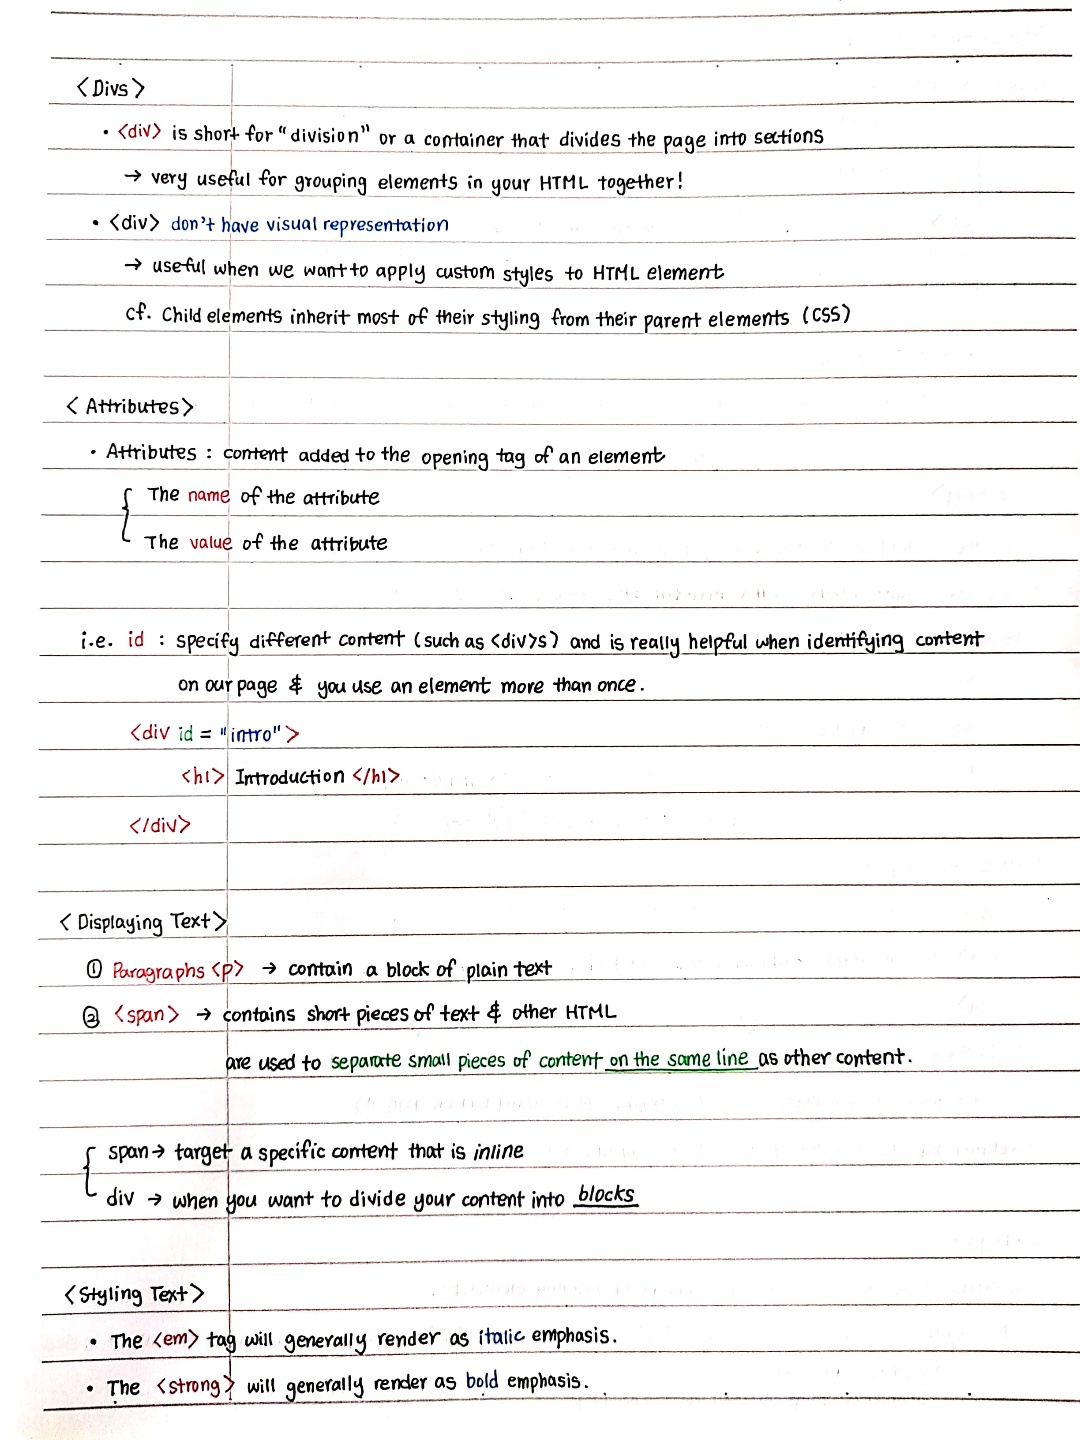 <Divs>
• <div> is short for "division" or a container that divides the page into sections
→ very useful for grouping elements in your HTML together!
• <div> don't have visual representation
→ useful when we want to apply custom styles to HTML element
cf. Child elements inherit most of their styling from their parent elements (CSS)
<Attributes>
• Attributes : content added to the opening tag of an element
{ The name of the attribute
The value of the attribute
i.e. id : specify different content (such as <div>s) and is really helpful when identifying content
on our page & you use an element more than once.
<div id = "intro">
<h1> Introduction </h1>
</div>
<Displaying Text>
① Paragraphs <p> → contain a block of plain text
② <span> → contains short pieces of text & other HTML
are used to separate small pieces of content on the same line as other content.
{ span → target a specific content that is inline
div → when you want to divide your content into blocks
<Styling Text>
• The <em> tag will generally render as italic emphasis.
• The <strong> will generally render as bold emphasis.